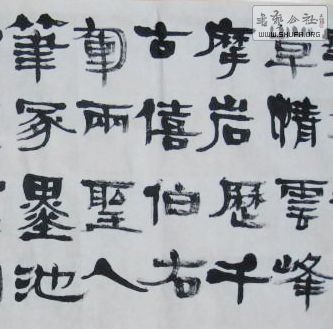 WWW.SHUFA.ORG
草情雲峰
摩岩歷千
古僖伯右
軍兩聖人
筆冢墨池